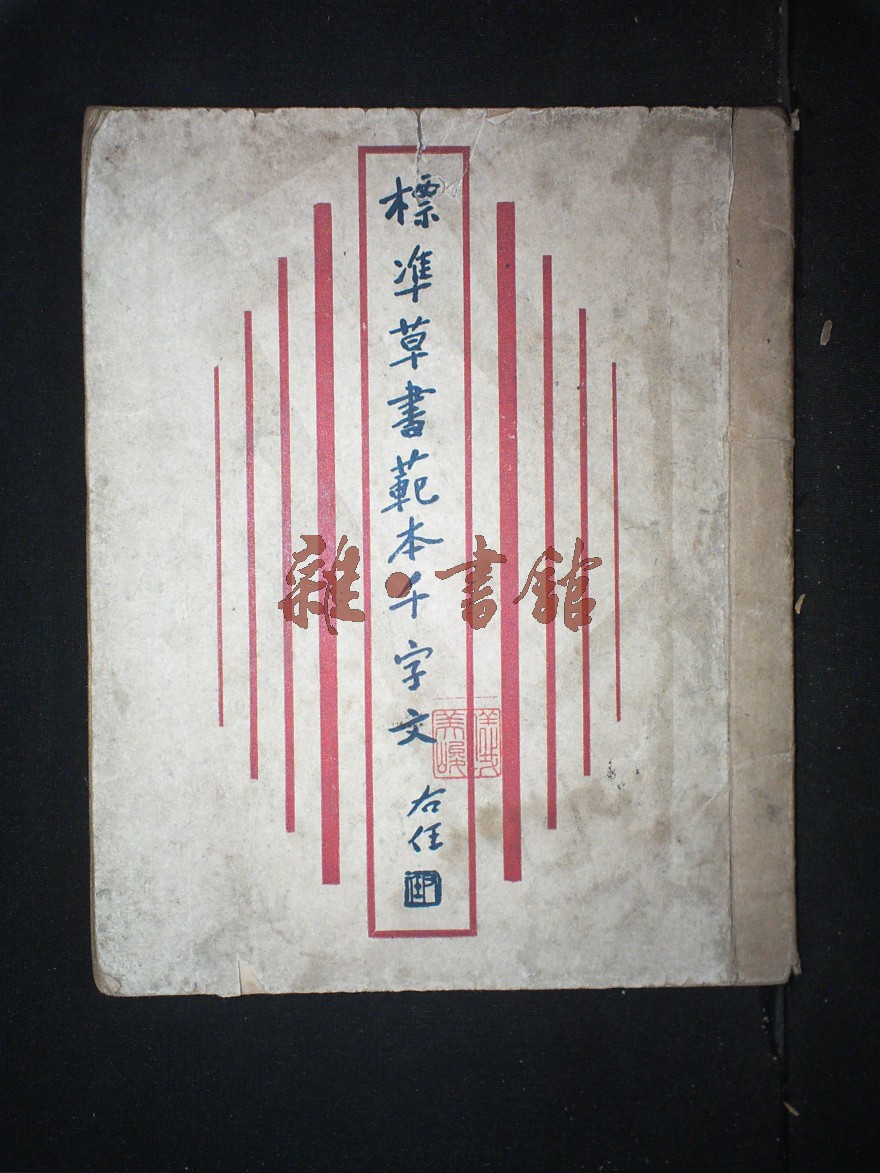 標準草書範本千字文
右任
雜·書館